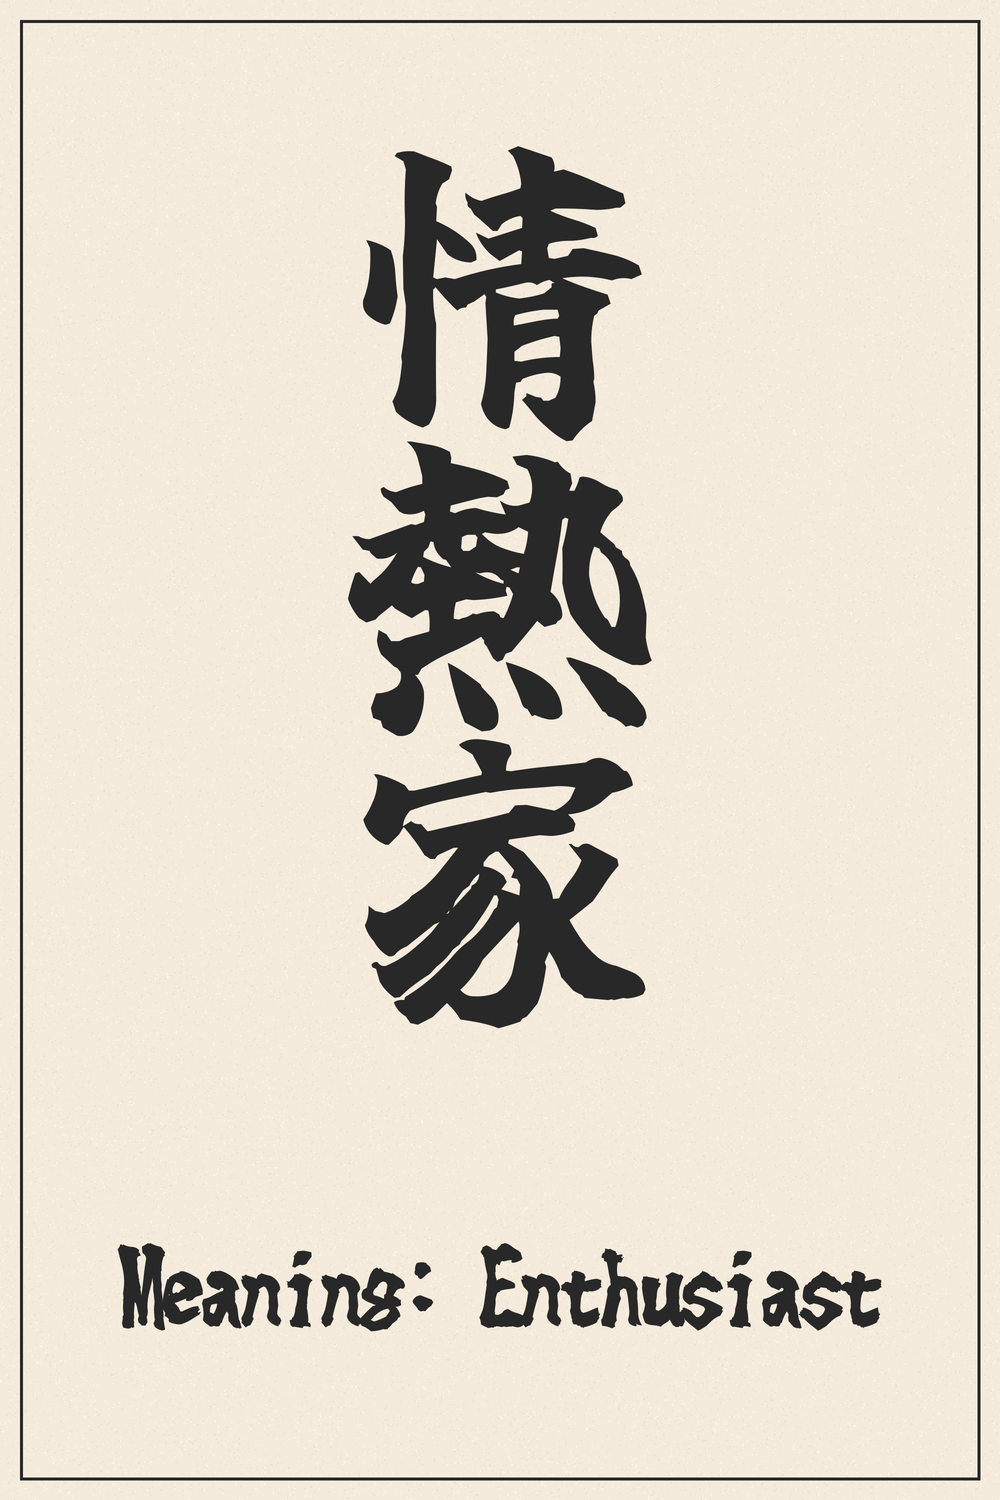 情熱家
Meaning: Enthusiast